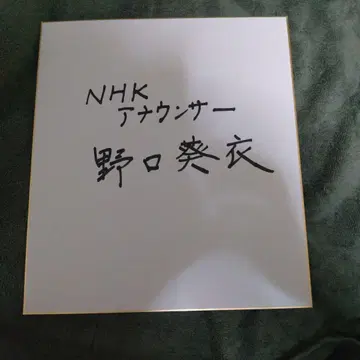 NHK
アナウンサー
野口葵衣